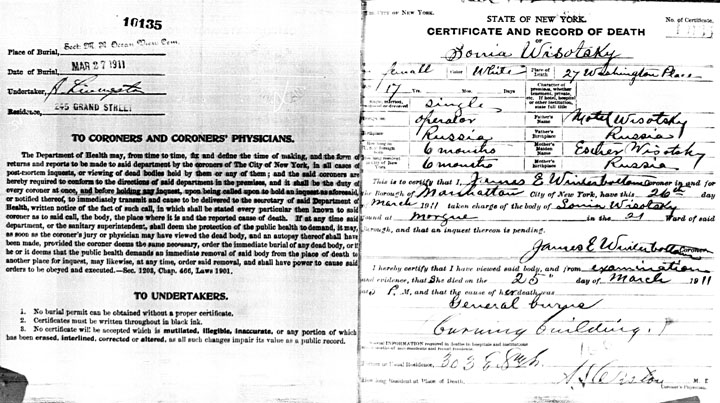 10135
Place of Burial,
Sect. M. N Ocean View Cem.
Date of Burial,
MAR 27 1911
Undertaker, A Livingston
Residence, 245 GRAND STREET
TO CORONERS AND CORONERS' PHYSICIANS.
The Department of Health may, from time to time, fix and define the time of making, and the form of
returns and reports to be made to said department by the coroners of The City of New York, in all cases of
post-mortem inquests, or viewing of dead bodies held by them or any of them; and the said coroners are
hereby required to conform to the directions of said department in the premises, and it shall be the duty of
every coroner at once, and before holding any inquest, upon being called upon to hold an inquest as aforesaid,
or notified thereof, to immediately transmit and cause to be delivered to the secretary of said Department of
Health, written notice of the fact of such call, in which shall be stated every particular then known to said
coroner as to said call, the body, the place where it is and the reported cause of death. If at any time said
department, or the sanitary superintendent, shall deem the protection of the public health to demand, it may,
as soon as the coroner's jury or physician may have viewed the dead body, and an autopsy thereof shall have
been made, provided the coroner deems the same necessary, order the immediate burial of any dead body, or if
he or it deems that the public health demands an immediate removal of said body from the place of death to
another place for inquest, may likewise, at any time, order said removal, and shall have power to cause said
orders to be obeyed and executed.—Sec. 1203, Chap. 466, Laws 1901.
TO UNDERTAKERS.
1. No burial permit can be obtained without a proper certificate.
2. Certificates must be written throughout in black ink.
3. No certificate will be accepted which is mutilated, illegible, inaccurate, or any portion of which
has been erased, interlined, corrected or altered, as all such changes impair its value as a public record.
City of New York.
STATE OF NEW YORK.
No. of Certificate.
CERTIFICATE AND RECORD OF DEATH
OF
Sonia Wisotsky
female Color White Place of Death 27 Washington Place
17 Yrs. Mos. Days
Character of premises, whether tenement, private, etc. If hotel, hospital or other institution, state full title
Single
operator Father's Name Motel Wisotsky
Birthplace Russia Father's Birthplace Russia
6 months Mother's Maiden Name Esther Wisotsky
6 months Mother's Birthplace Russia
This is to certify that I, James E Winterbottom Coroner in and for
the Borough of Manhattan City of New York, have this 26th day
March 1911 taken charge of the body of Sonia Wisotsky
found at morgue in the 21 ward of said
Borough, and that an inquest thereon is pending.
James E Winterbottom Coroner.
I hereby certify that I have viewed said body, and from examination
and evidence, that she died on the 25 day of March 1911
P. M, and that the cause of her death was
General burns
Burning building.
INFORMATION required in deaths in hospitals and institutions
and deaths of non-residents and recent residents.
Usual Residence, 303 E 8th.
How long Resident at Place of Death.
M. D.
Coroner's Physician.